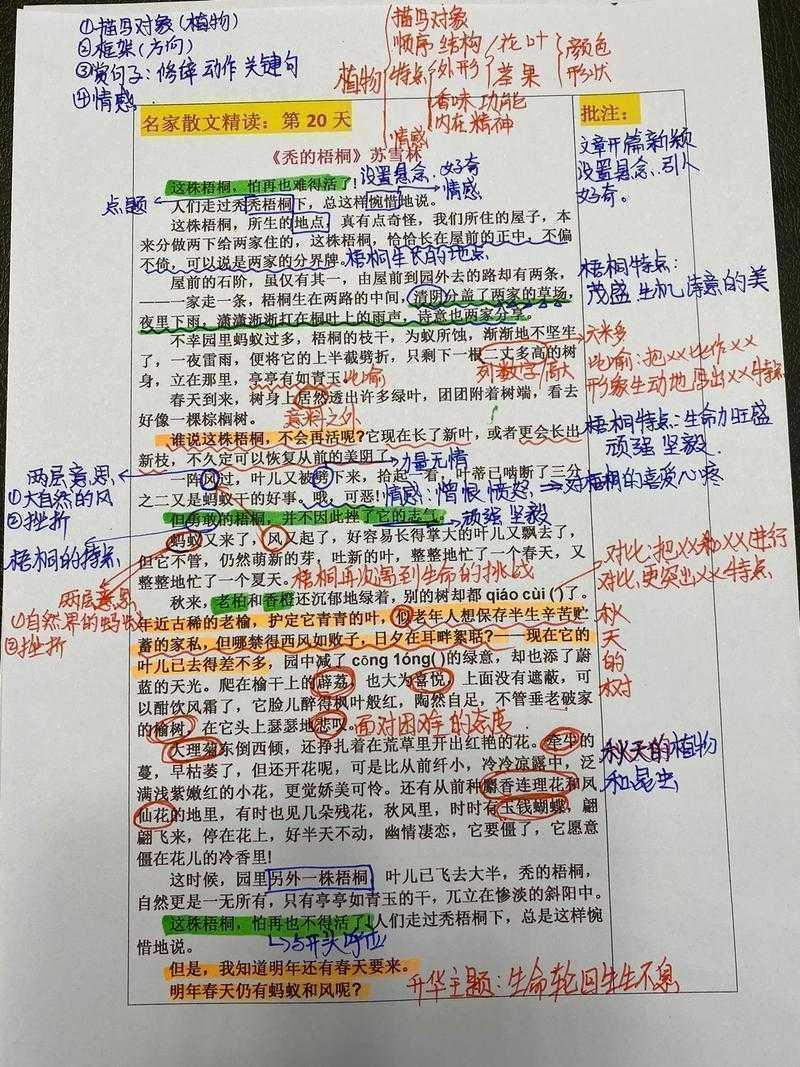 ①描写对象(植物)
②框架(方向)
③赏句子：修辞 动作 关键句
④情感
植物
描写对象
顺序 结构
特点
外形
花 叶
茎 果
颜色
形状
香味 功能
内在精神
情感
名家散文精读：第 20 天
批注：
《秃的梧桐》苏雪林
这株梧桐，怕再也难得活了！
设置悬念、好奇
点题
人们走过秃秃梧桐下，总这样惋惜地说。
情感
文章开篇新颖
设置悬念、引人
好奇。
这株梧桐，所生的地点，真有点奇怪，我们所住的屋子，本
来分做两下给两家住的，这株梧桐，恰恰长在屋前的正中，不偏
不倚，可以说是两家的分界牌。
梧桐生长的地点
屋前的石阶，虽仅有其一，由屋前到园外去的路却有两条，
——一家走一条，梧桐生在两路的中间，清阴分盖了两家的草场，
夜里下雨，潇潇淅淅打在桐叶上的雨声，诗意也两家分享。
梧桐特点：
茂盛 生机 诗意的美
不幸园里蚂蚁过多，梧桐的枝干，为蚁所蚀，渐渐地不坚牢
了，一夜雷雨，便将它的上半截劈折，只剩下一根二丈多高的树
身，立在那里，亭亭有如青玉。
比喻
列数字/高大
六米多
比喻：把XX比作XX
形象生动地写出XX特点
春天到来，树身上居然透出许多绿叶，团团附着树端，看去
好像一棵棕榈树。
意料之外
谁说这株梧桐，不会再活呢？它现在长了新叶，或者更会长出
新枝，不久定可以恢复从前的美阴了。
力量无情
梧桐特点：生命力旺盛
顽强 坚毅
一阵风过，叶儿又被劈下来，拾起一看，叶蒂已啮断了三分
之二又是蚂蚁干的好事。哦，可恶！
情感：憎恨 愤怒
对梧桐的喜爱心疼
两层意思
①大自然的风
②挫折
但勇敢的梧桐，并不因此挫了它的志气。
顽强 坚毅
梧桐的特点
蚂蚁又来了，风又起了，好容易长得掌大的叶儿又飘去了，
但它不管，仍然萌新的芽，吐新的叶，整整地忙了一个春天，又
整整地忙了一个夏天。
梧桐再次遇到生命的挑战
两层意思
①自然界的蚂蚁
②挫折
对比：把XX和XX进行
对比，更突出XX特点
秋来，老柏和香橙还沉郁地绿着，别的树却都 qiáo cuì ( )了。
年近古稀的老榆，护定它青青的叶，似老年人想保存半生辛苦贮
蓄的家私，但哪禁得西风如败子，日夕在耳畔絮聒？——现在它的
叶儿已去得差不多，园中减了 cōng 1óng( )的绿意，却也添了蔚
蓝的天光。爬在榆干上的薜荔，也大为喜悦，上面没有遮蔽，可
以酣饮风霜了，它脸儿醉得枫叶般红，陶然自足，不管垂老破家
的榆树，在它头上瑟瑟地悲叹。
面对困难的态度
秋
天
的
树
大理菊东倒西倾，还挣扎着在荒草里开出红艳的花。牵牛的
蔓，早枯萎了，但还开花呢，可是比从前纤小，冷冷凉露中，泛
满浅紫嫩红的小花，更觉娇美可怜。还有从前种麝香连理花和凤
仙花的地里，有时也见几朵残花，秋风里，时时有玉钱蝴蝶，翩
翩飞来，停在花上，好半天不动，幽情凄恋，它要僵了，它愿意
僵在花儿的冷香里!
秋天的植物
和昆虫
这时候，园里另外一株梧桐，叶儿已飞去大半，秃的梧桐，
自然更是一无所有，只有亭亭如青玉的干，兀立在惨淡的斜阳中。
这株梧桐，怕再也不得活了!人们走过秃梧桐下，总是这样惋
惜地说。
与开头呼应
但是，我知道明年还有春天要来。
明年春天仍有蚂蚁和风呢？
升华主题：生命轮回生生不息